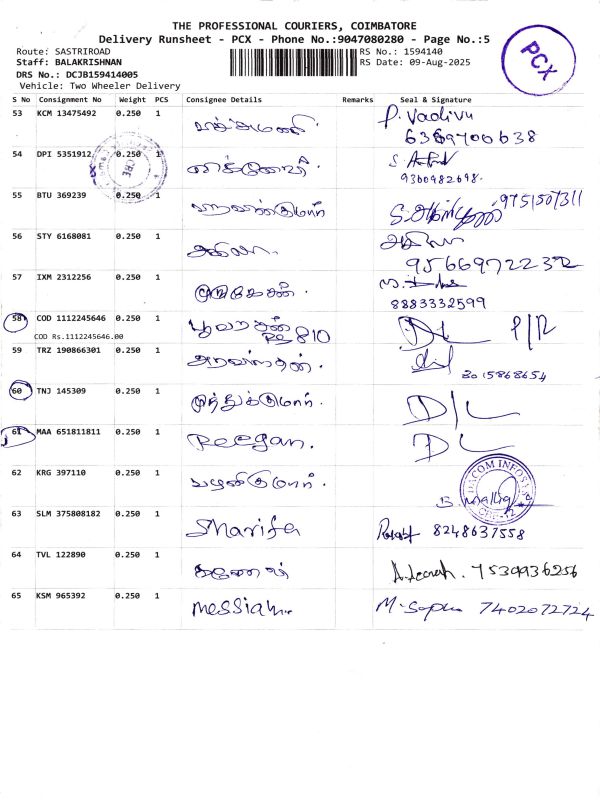 THE PROFESSIONAL COURIERS, COIMBATORE
Delivery Runsheet - PCX - Phone No.:9047080280 - Page No.:5
Route: SASTRIROAD
Staff: BALAKRISHNAN
DRS No.: DCJB159414005
Vehicle: Two Wheeler Delivery
RS No.: 1594140
RS Date: 09-Aug-2025
PCX
S No Consignment No Weight PCS Consignee Details Remarks Seal & Signature
53 KCM 13475492 0.250 1 P. Vadivu
6369700638
54 DPI 5351912 0.250 1
9360982698.
55 BTU 369239 0.250 1 9751507311
56 STY 6168081 0.250 1 அகிலா.
9566972232
57 IXM 2312256 0.250 1 முருகேசன்.
8883332599
58 COD 1112245646 0.250 1 பூவரசன் DL P/R
COD Rs.1112245646.00 Rs 810
59 TRZ 190866301 0.250 1 அரவிந்தன்.
8015868654
60 TNJ 145309 0.250 1 முத்துக்குமார். D/L
61 MAA 651811811 0.250 1 Reegan. DL
62 KRG 397110 0.250 1 பழனிகுமார்.
63 SLM 375808182 0.250 1 Sharifa 8248637558
64 TVL 122890 0.250 1 7530936256
65 KSM 965392 0.250 1 Messiah M. Sophia 7402072724